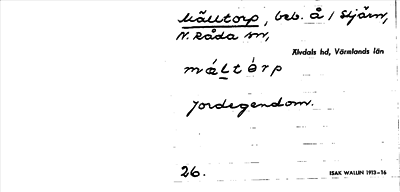 Mältorp, beb. å / Stjärn,
N. Råda sn,
Älvdals hd, Värmlands län
máltòrp
Jordegendom.
26.
ISAK WALLIN 1913–16